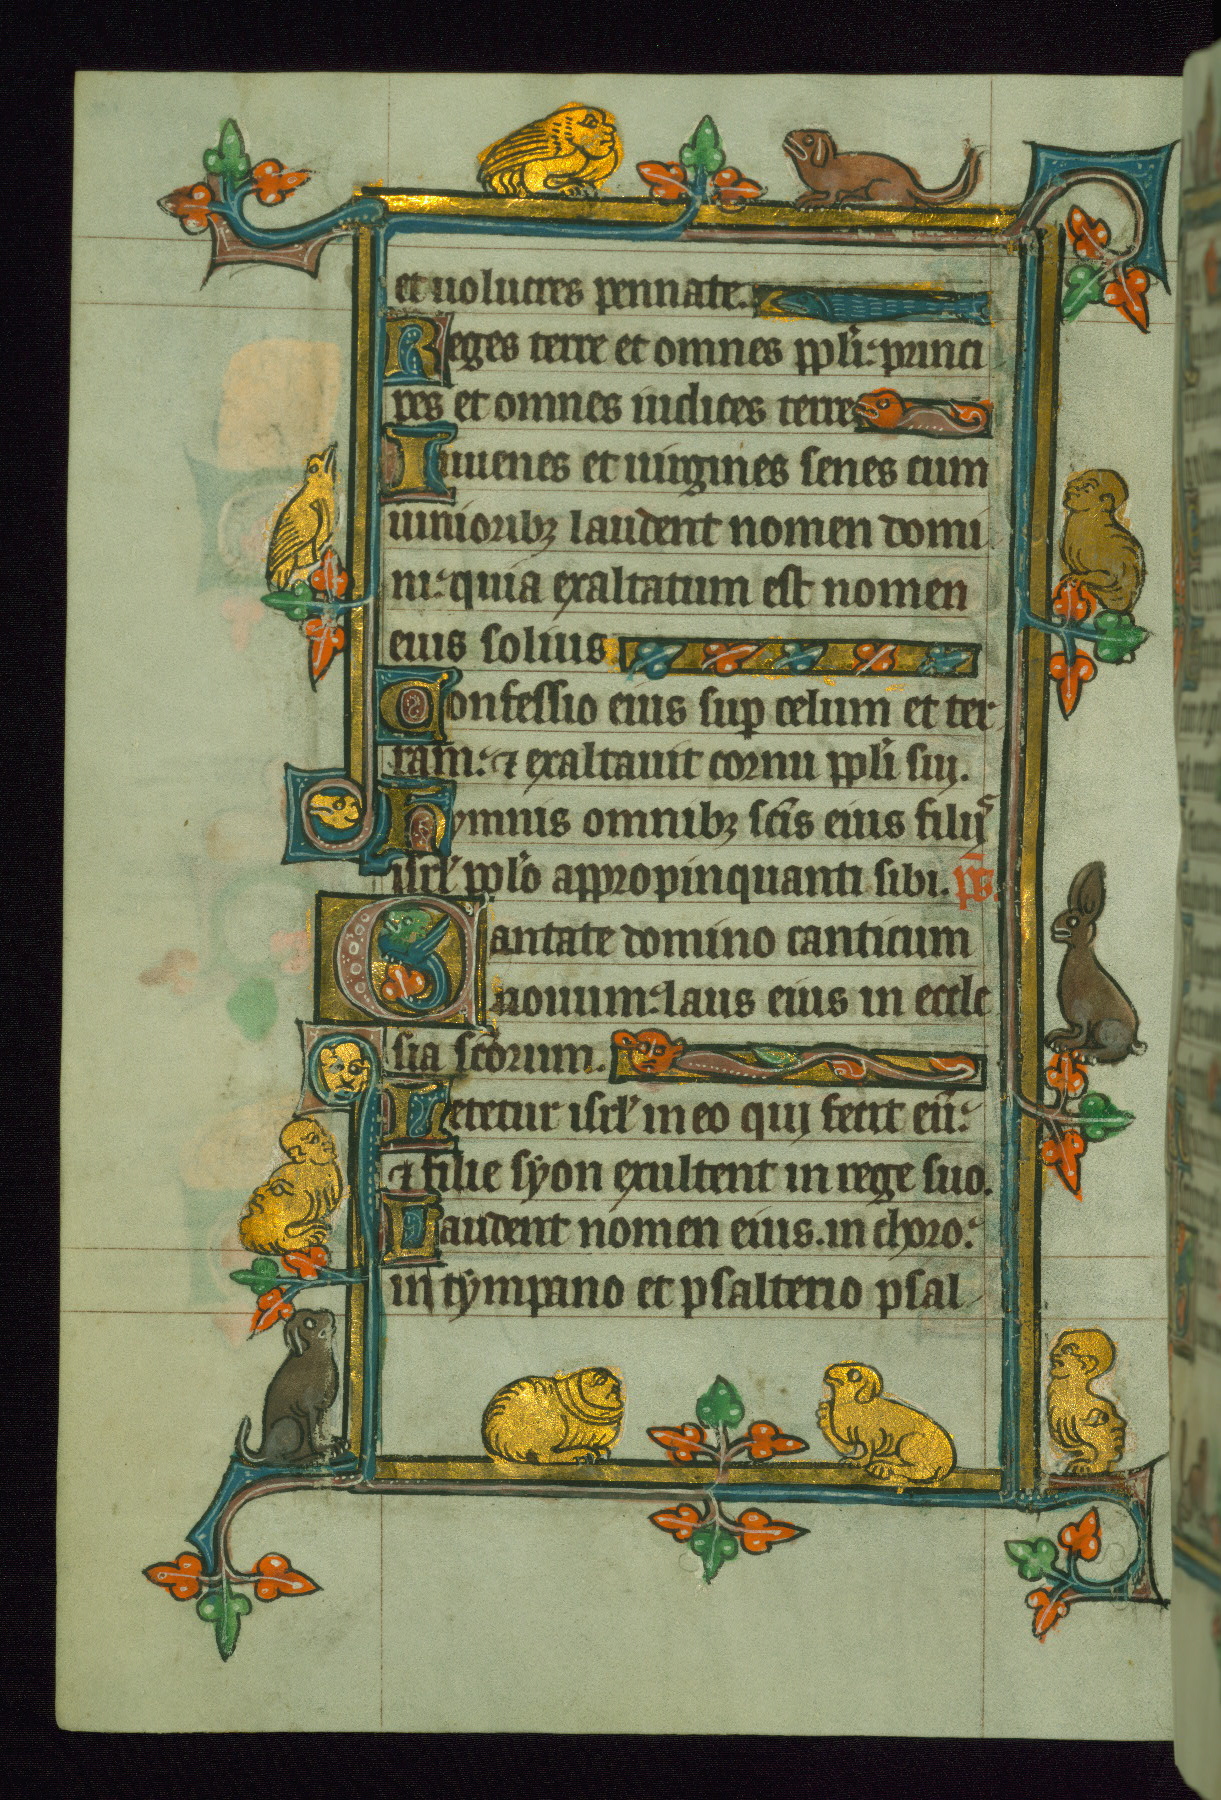 et uolucres pennate.
Reges terre et omnes ppl̄i: princi
pes et omnes iudices terre
Iuuenes et uirgines senes cum
iunioribꝫ laudent nomen domi
ni: quia exaltatum est nomen
eius solius
Confessio eius sup celum et ter
ram: ⁊ exaltauit cornu ppl̄i sui.
hymnis omnibꝫ sc̄is eius filijˢ
isrl̄ ppl̄o appropinquanti sibi. ps̄.
Cantate domino canticum
nouum: laus eius in eccle
sia sc̄orum.
Letetur isrl̄ in eo qui fecit eū:
⁊ filie syon exultent in rege suo.
Laudent nomen eius. in choro:
in tympano et psalterio psal